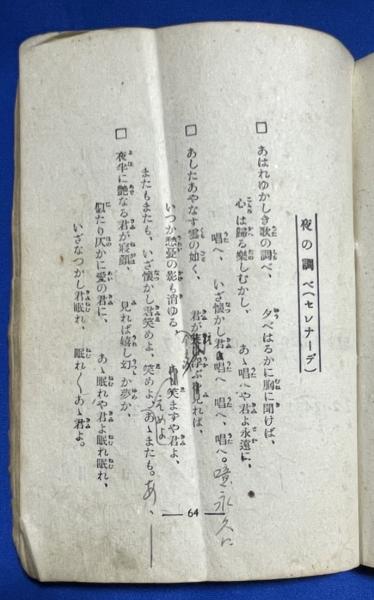 夜の調べ(セレナーデ)
□ あはれゆかしき歌の調べ、 夕べはるかに胸に聞けば、
心は歸る樂しむかし、 あゝ唱へや君よ永遠に、
唱へ、いざ懐かし君、唱へ 唱へ、唱へ。 永久に
□ あしたあやなす雲の如く、 君が 見れば、
いつか悲憂の影も消ゆる、 笑ますや君よ、
またもまたも、いざ懐かし君笑めよ、笑めよ、あゝまたも。あゝ
えめよ
□ 夜半に艶なる君が寢顔、 見れば嬉し幻か夢か、
似たり仄かに愛の君に、 あゝ眠れや君よ眠れ眠れ、
いざなつかし君眠れ、 眠れ〱あゝ君よ。
64